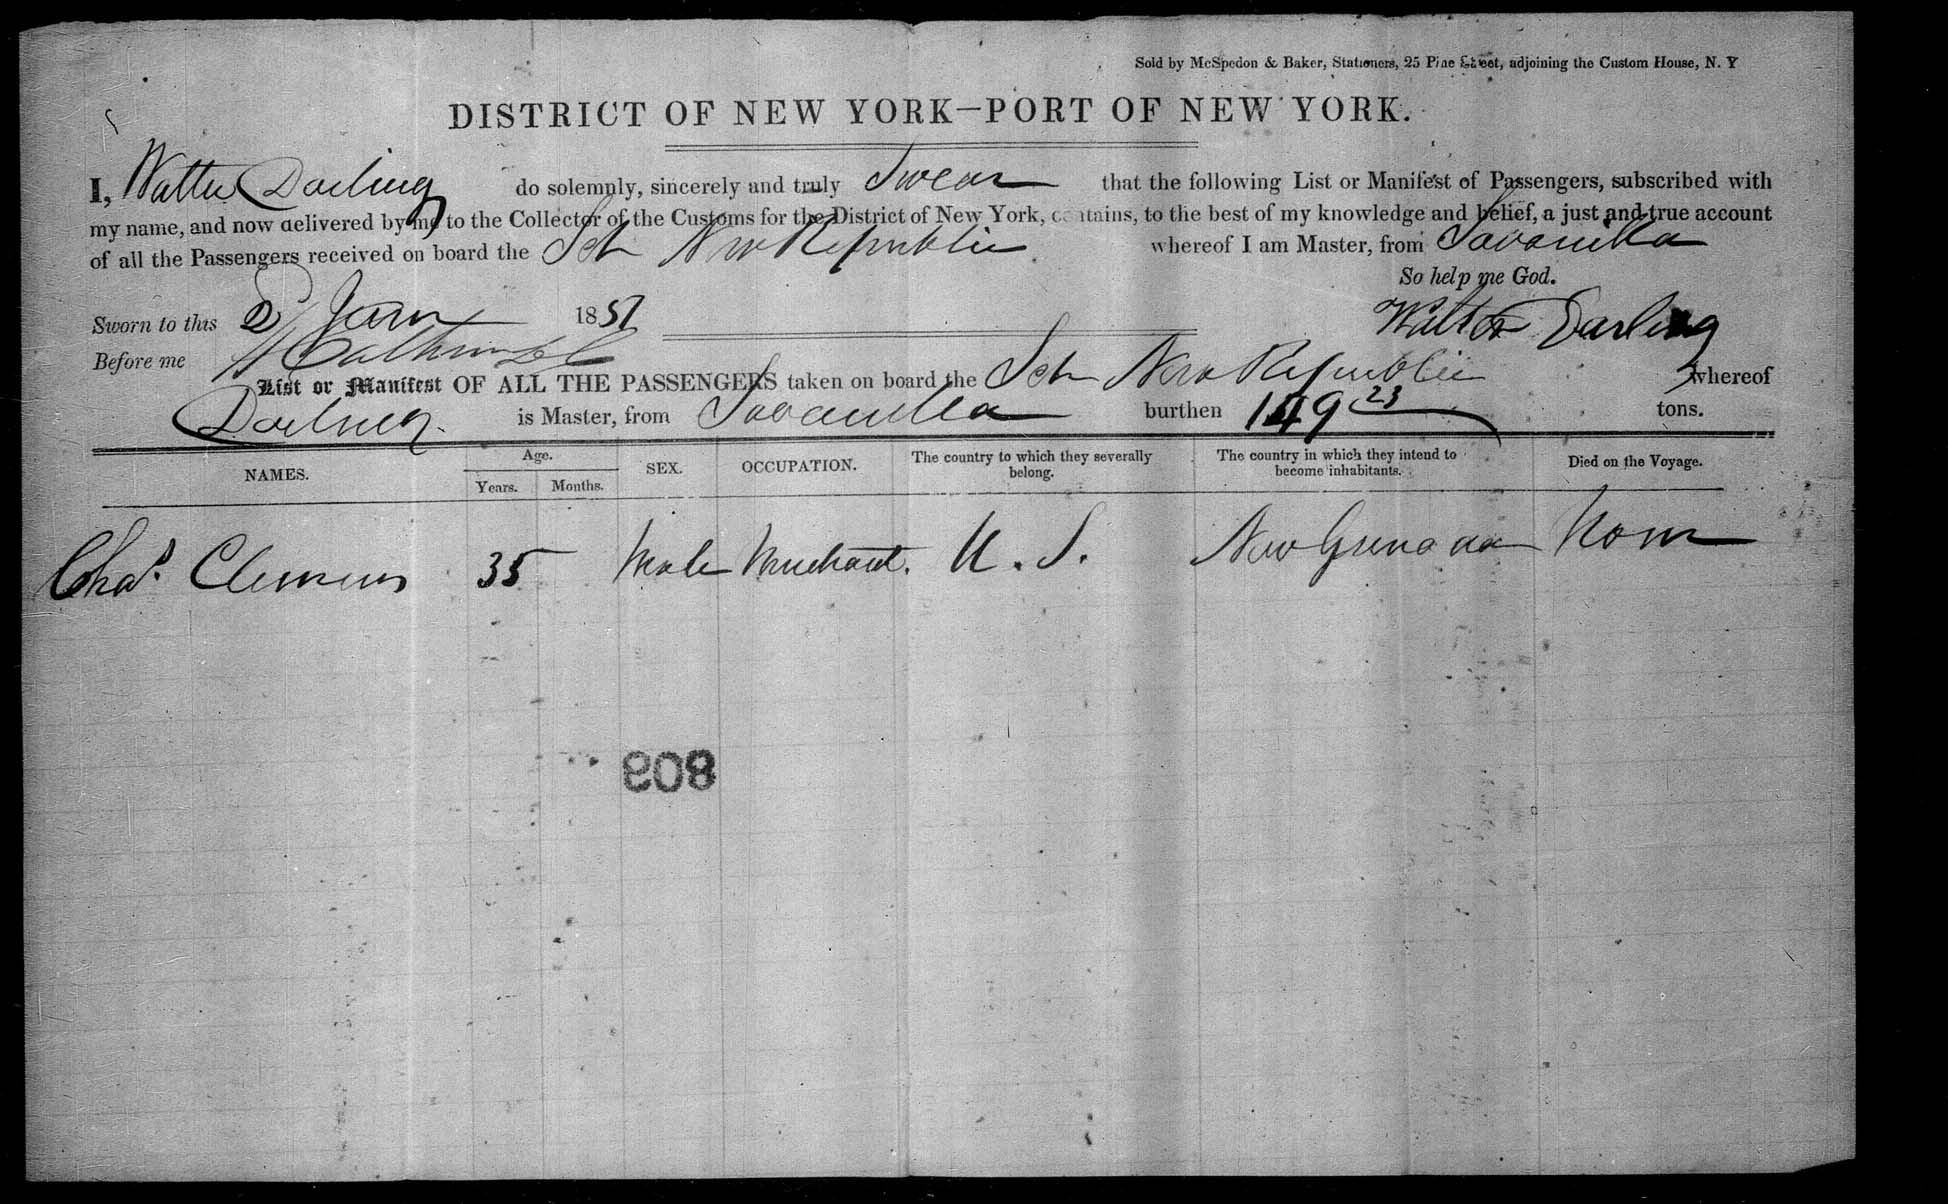 Sold by McSpedon & Baker, Stationers, 25 Pine Street, adjoining the Custom House, N. Y
DISTRICT OF NEW YORK—PORT OF NEW YORK.
I, Walter Darling do solemnly, sincerely and truly Swear that the following List or Manifest of Passengers, subscribed with
my name, and now delivered by me to the Collector of the Customs for the District of New York, contains, to the best of my knowledge and belief, a just and true account
of all the Passengers received on board the Sch New Republic whereof I am Master, from Savanilla
So help me God.
Sworn to this Jany 1851
Walter Darling
Before me
List or Manifest OF ALL THE PASSENGERS taken on board the Sch New Republic whereof
Darling is Master, from Savanilla burthen 149 23 tons.
NAMES. Age. Years. Months. SEX. OCCUPATION. The country to which they severally belong. The country in which they intend to become inhabitants. Died on the Voyage.
Chas. Clemens 35 Male Merchant. U. S. New Grenada None
808